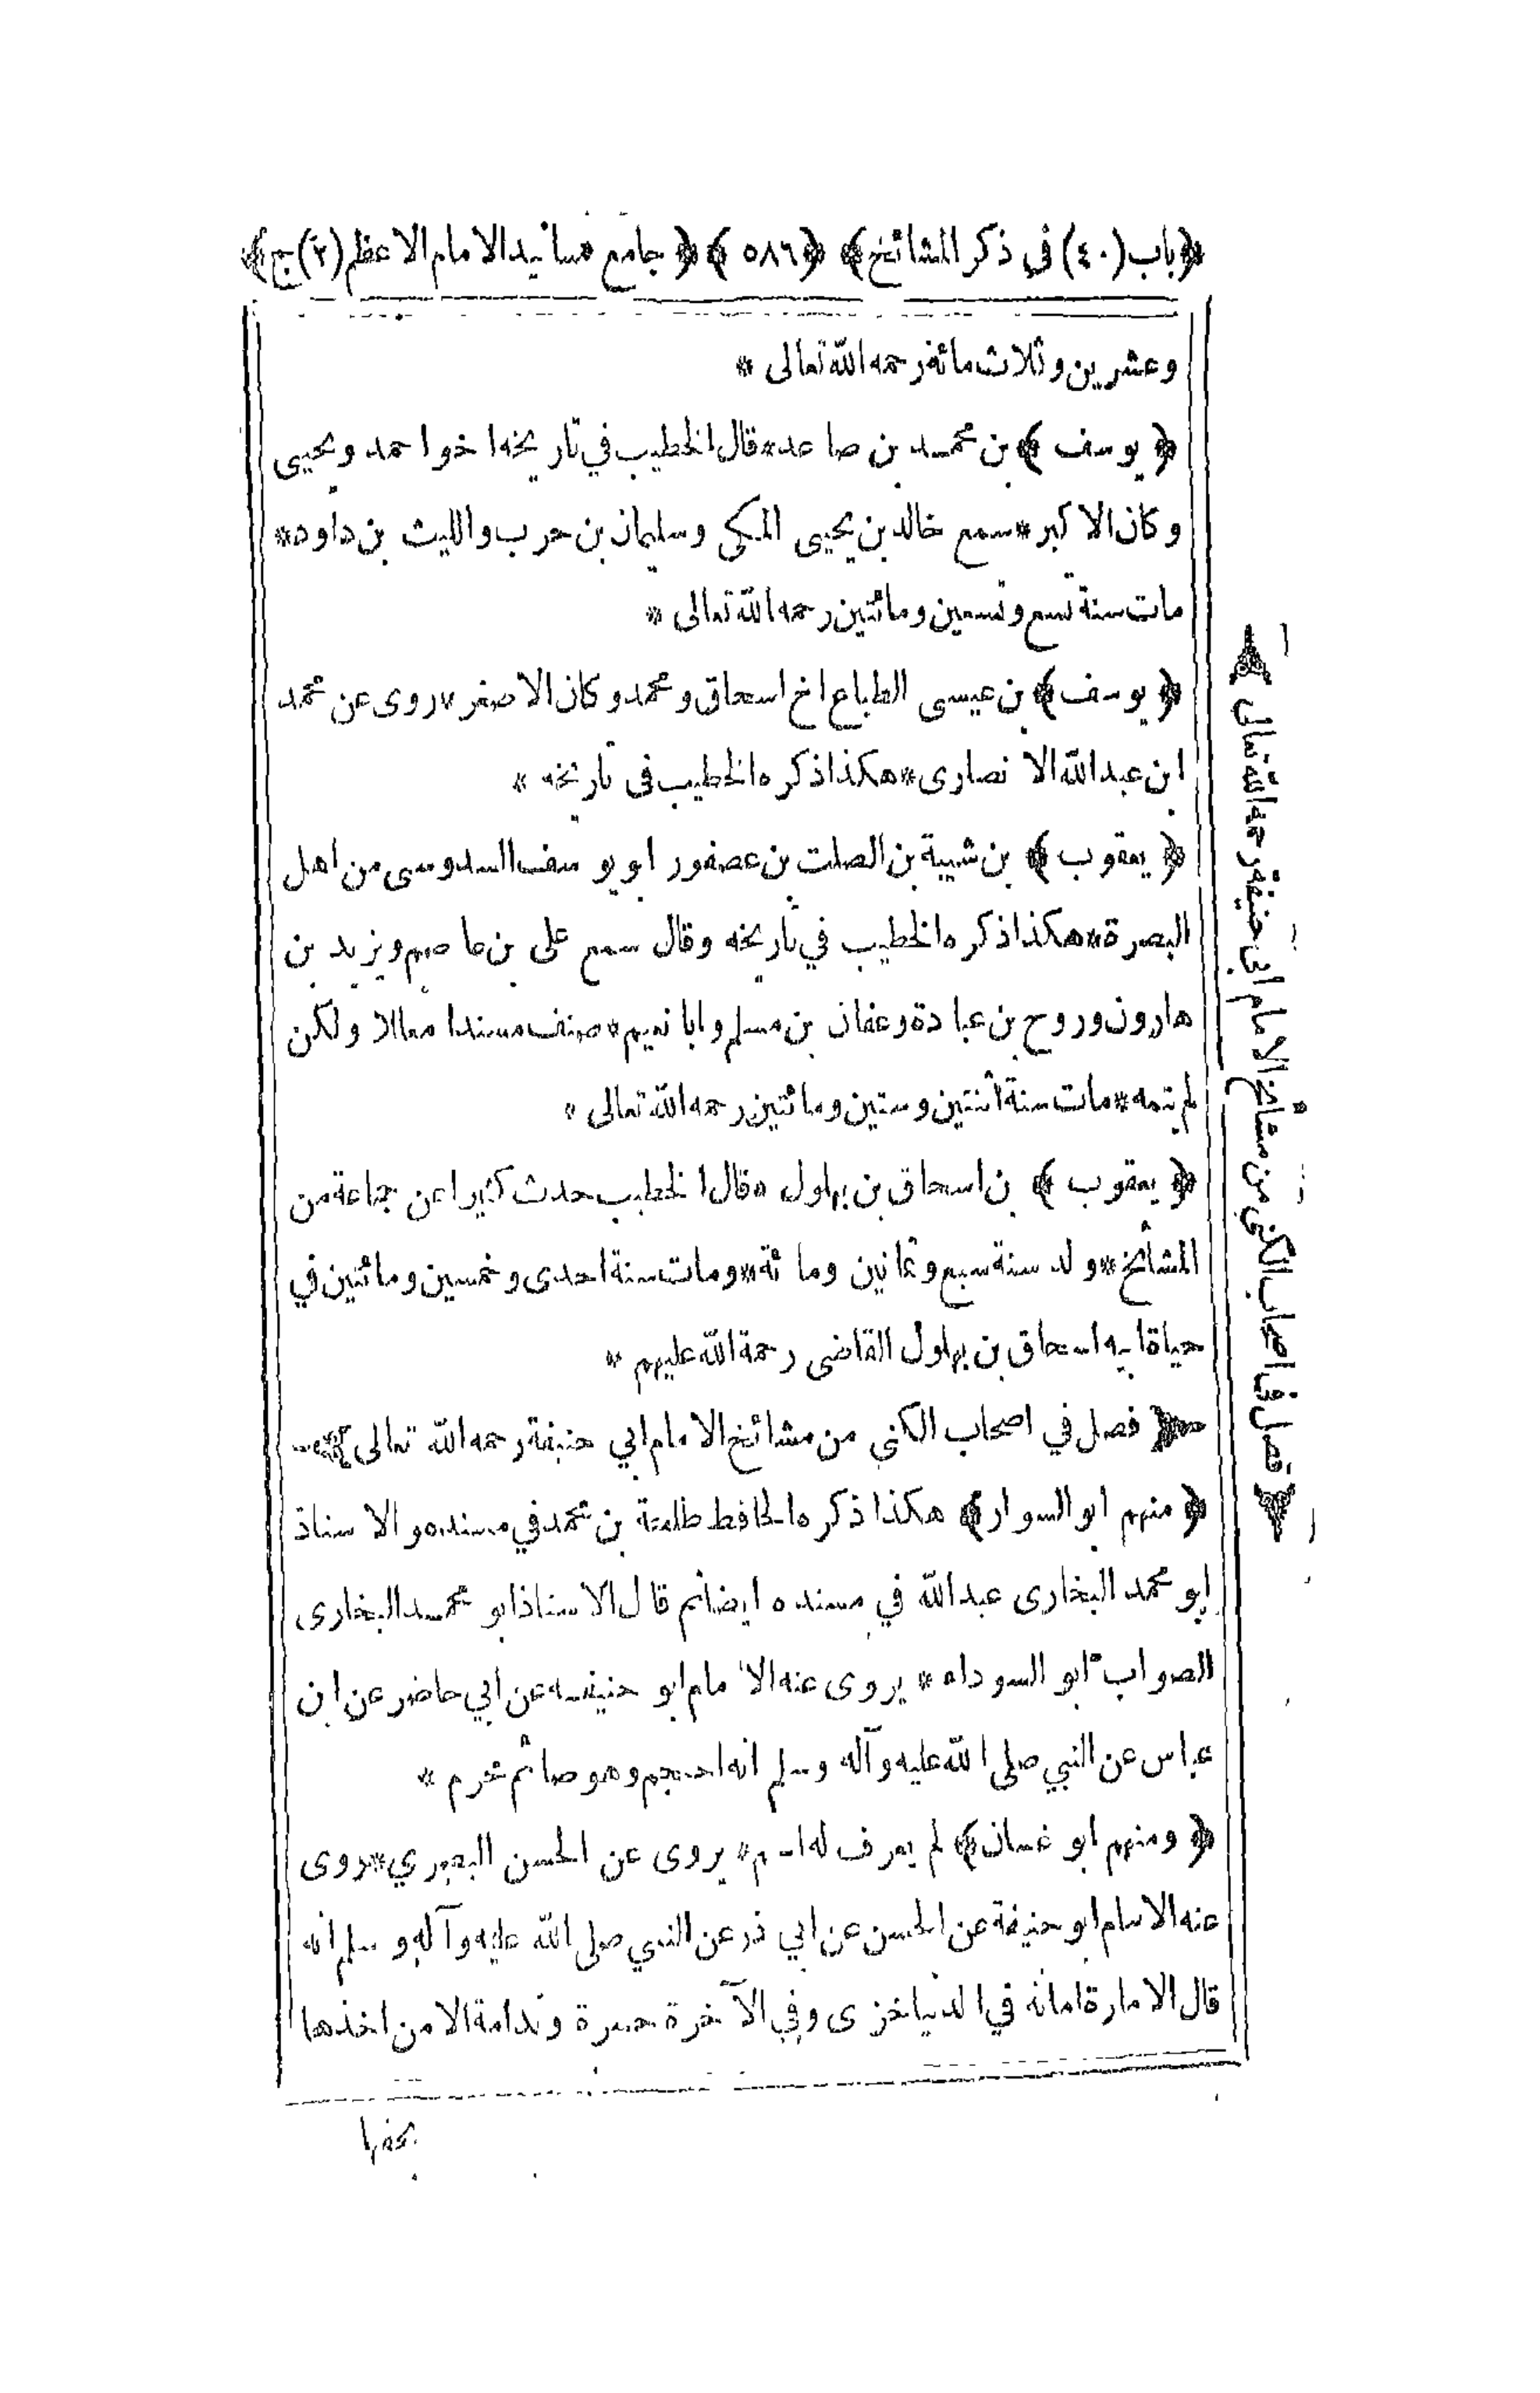 ﴿باب (٤٠) في ذكر المشائخ﴾ ﴿٥٨٦﴾ ﴿جامع مسانيد الامام الاعظم (٢) ج﴾
وعشرين وثلاث مائة رحمه الله تعالى *
﴿ يوسف ﴾ بن محمد بن صاعد * قال الخطيب في تاريخه اخو احمد ويحيى
وكان الاكبر * سمع خالد بن يحيى المكي وسليمان بن حرب والليث بن داود *
مات سنة تسع وتسعين ومائتين رحمه الله تعالى *
﴿ يوسف ﴾ بن عيسى الطباع اخ اسحاق ومحمد وكان الاصغر * روى عن محمد
ابن عبد الله الانصارى * هكذا ذكره الخطيب في تاريخه *
﴿ يعقوب ﴾ بن شيبة بن الصلت بن عصفور ابو يوسف السدوسى من اهل
البصرة * هكذا ذكره الخطيب في تاريخه وقال سمع على بن عاصم ويزيد بن
هارون وروح بن عبادة وعفان بن مسلم وابا نعيم * صنف مسندا معللا ولكن
لم يتمه * مات سنة اثنتين وستين ومائتين رحمه الله تعالى *
﴿ يعقوب ﴾ بن اسحاق بن بهلول * قال الخطيب حدث كثيرا عن جماعة من
المشائخ * ولد سنة سبع وثمانين ومائة * ومات سنة احدى وخمسين ومائتين في
حياة ابيه اسحاق بن بهلول القاضى رحمة الله عليهم *
﴿ فصل في اصحاب الكنى من مشائخ الامام ابي حنيفة رحمه الله تعالى ﴾
﴿ منهم ابو السوار ﴾ هكذا ذكره الحافظ طلحة بن محمد في مسنده والاستاذ
ابو محمد البخارى عبد الله في مسنده ايضا ثم قال الاستاذ ابو محمد البخارى
الصواب ابو السوداء * يروى عنه الامام ابو حنيفه عن ابي حاضر عن ابن
عباس عن النبي صلى الله عليه وآله وسلم انه احتجم وهو صائم محرم *
﴿ ومنهم ابو غسان ﴾ لم يعرف له اسم * يروى عن الحسن البصري * روى
عنه الامام ابو حنيفة عن الحسن عن ابي ذر عن النبي صلى الله عليه وآله وسلم انه
قال الامارة امانة في الدنيا خزى وفي الآخرة حسرة وندامة الا من اخذها
بحقها
﴿ فصل في اصحاب الكنى من مشائخ الامام ابي حنيفة رحمه الله تعالى ﴾